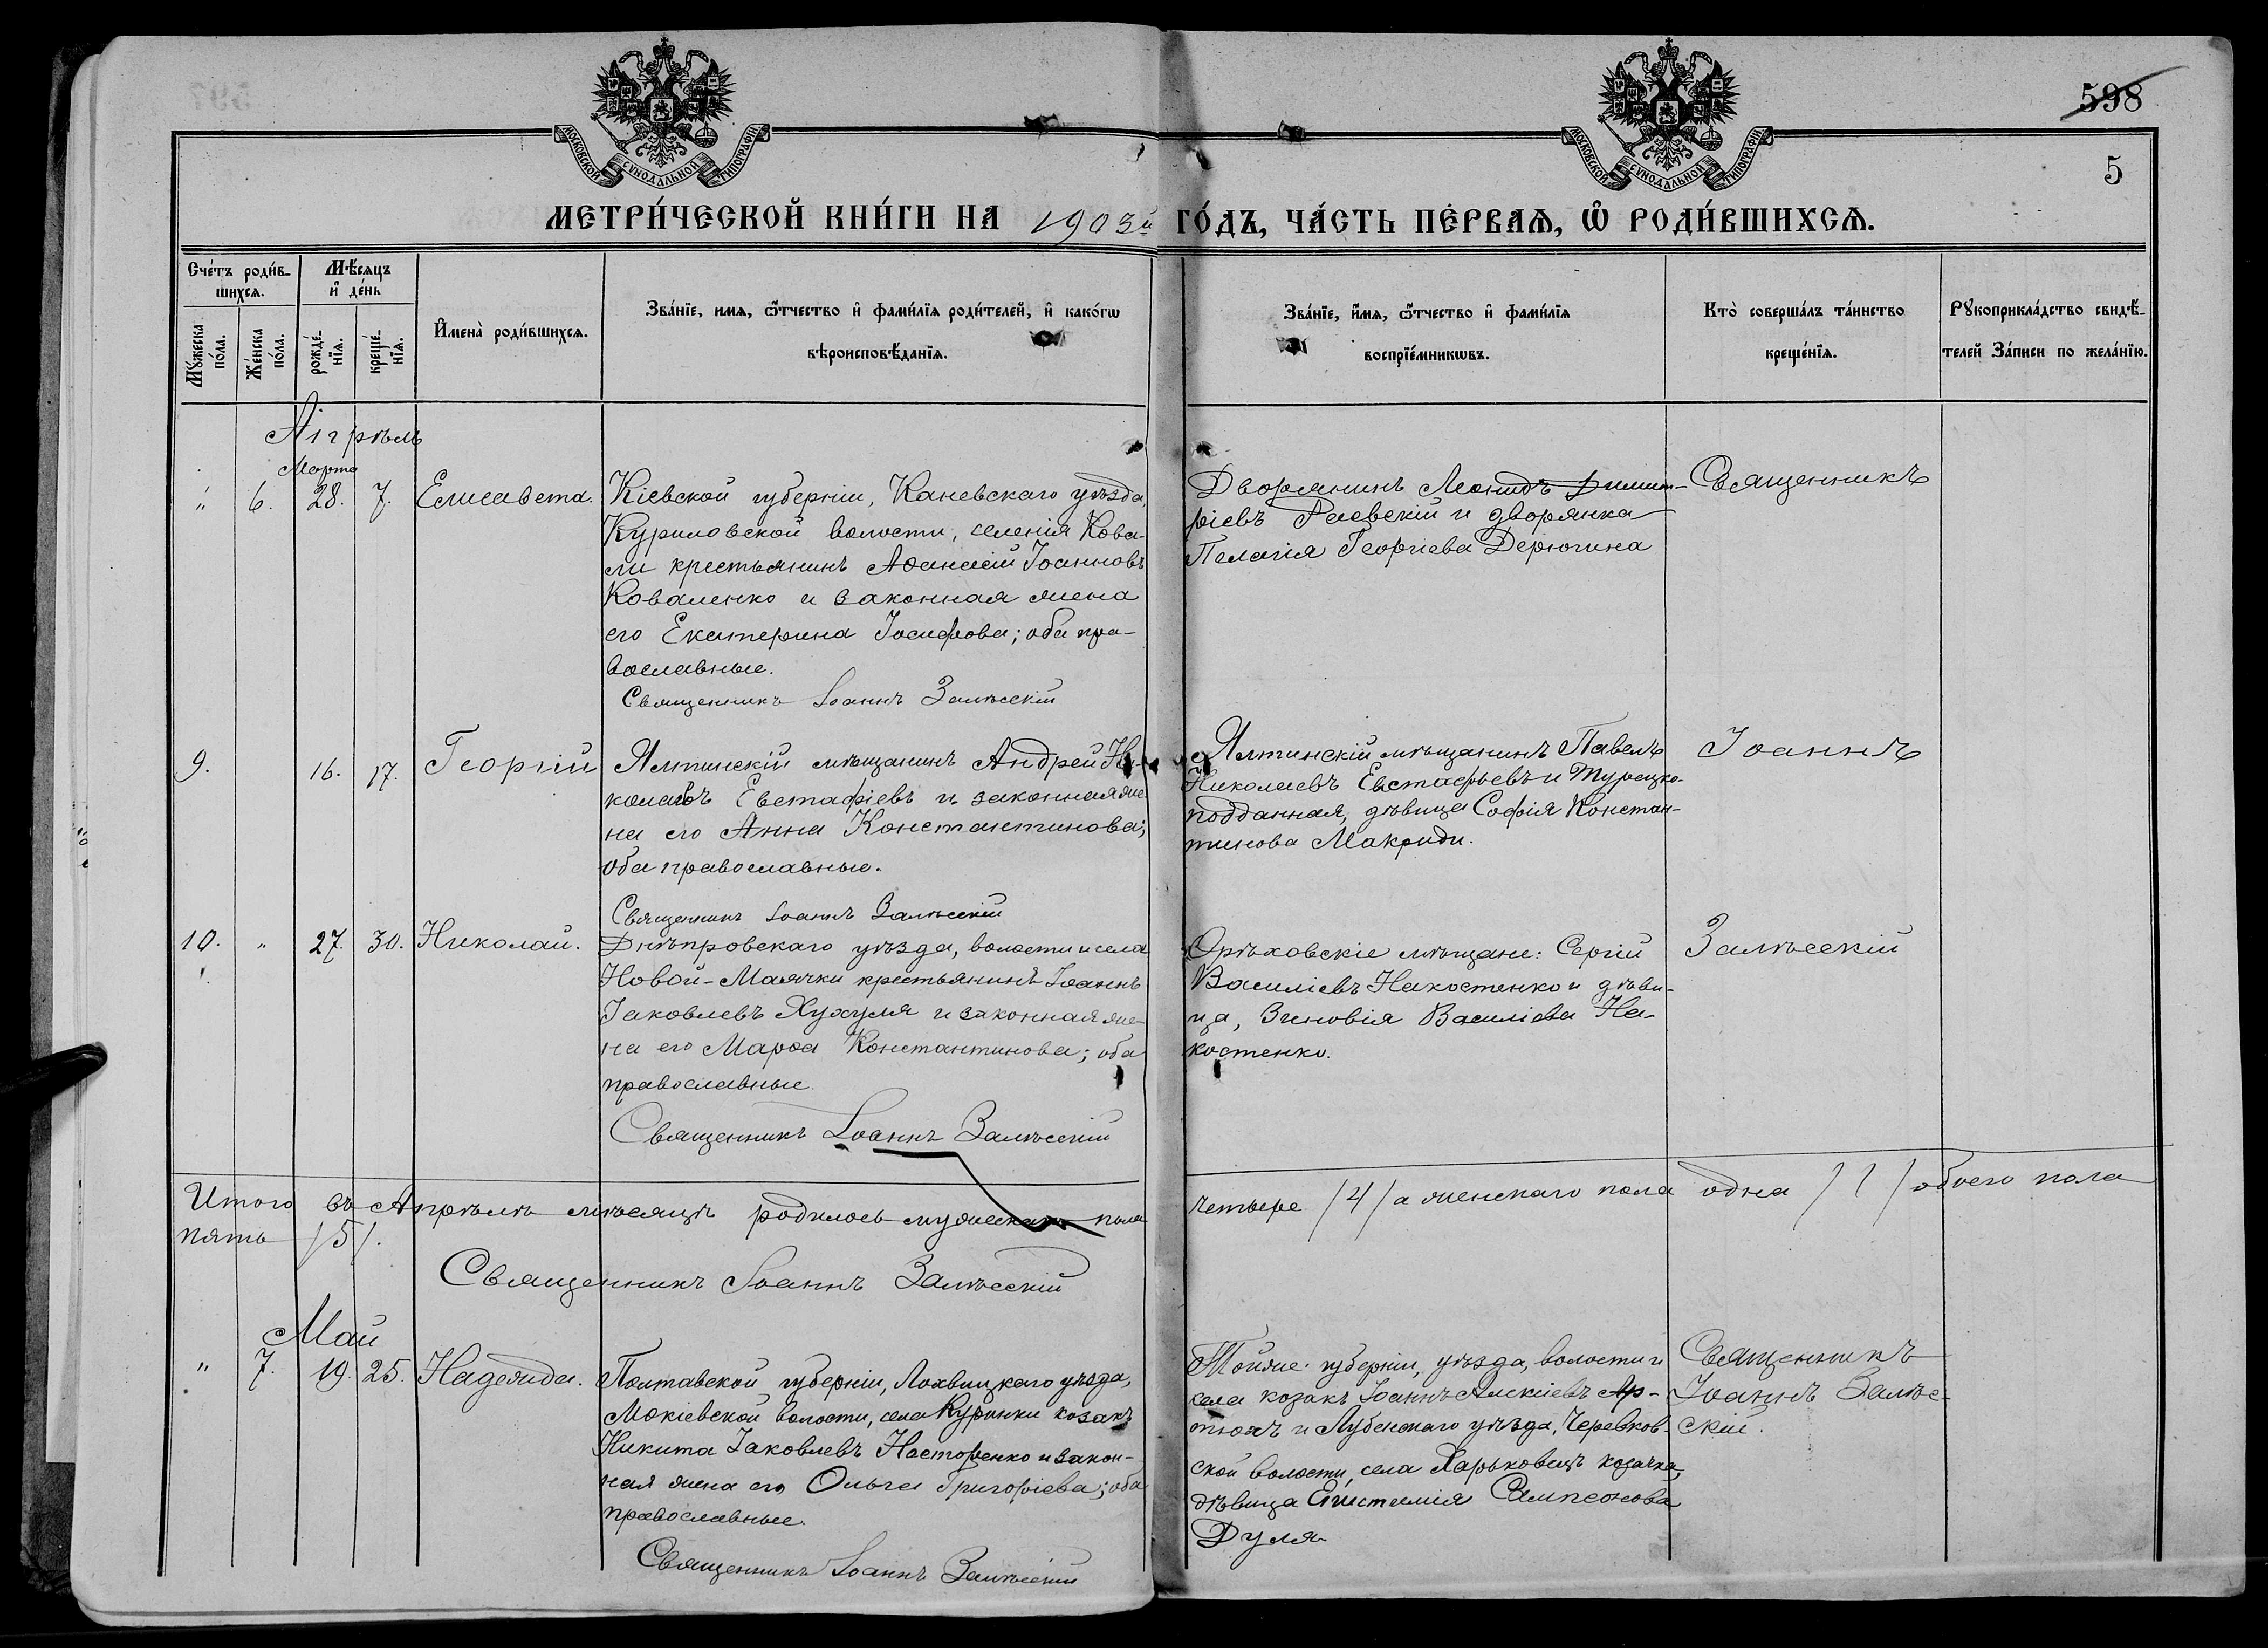 598
5
МОСКОВСКОЙ СѴНОДАЛЬНОЙ ТИПОГРАФІИ
МОСКОВСКОЙ СѴНОДАЛЬНОЙ ТИПОГРАФІИ
МЕТРИ́ЧЕСКОЙ КНИ́ГИ НА 1903й ГО́ДЪ, ЧА́СТЬ ПЕ́РВАѦ, Ѡ҆ РОДИ́ВШИХСѦ.
Сче́тъ роди́в-
шихсѧ.
Мѣ́сяцъ
и҆ де́нь
Мꙋ́жеска
по́ла.
Же́нска
по́ла.
рожде́-
нїѧ.
креще́-
нїѧ.
И҆мена̀ роди́вшихсѧ.
Зва́нїе, имѧ, ѻ҆́тчество и҆ фами́лїѧ роди́телей, и҆ како́гѡ
вѣроисповѣ́данїѧ.
Зва́нїе, и҆́мѧ, ѻ҆́тчество и҆ фами́лїѧ
воспрїе́мникѡвъ.
Кто̀ соверша́лъ та́инство
креще́нїѧ.
Рꙋкоприкла́дство свидѣ́-
телей За́писи по жела́нїю.
Апрѣль
Марта
" 6. 28. 7. Елисавета.
Кіевской губерніи, Каневскаго уѣзда,
Куриловской волости, селенія Кова-
ли крестьянинъ Аѳанасій Іоанновъ
Коваленко и законная жена
его Екатерина Іосифова; оба пра-
вославные.
Священникъ Іоаннъ Залѣсскій
Дворянинъ Леонидъ Димит-
ріевъ Раевскій и дворянка
Пелагія Георгіева Дерюгина
Священникъ
9. 16. 17. Георгій
Ялтинскій мѣщанинъ Андрей Ни-
колаевъ Евстафіевъ и законная же-
на его Анна Константинова;
оба православные.
Священникъ Іоаннъ Залѣсскій
Ялтинскій мѣщанинъ Павелъ
Николаевъ Евстафьевъ и Турецко-
подданная, дѣвица Софія Констан-
тинова Макриди.
Іоаннъ
10. " 27. 30. Николай.
Днѣпровскаго уѣзда, волости и села
Новой-Маячки крестьянинъ Іоаннъ
Іаковлевъ Хухуля и законная же-
на его Марѳа Константинова; оба
православные.
Священникъ Іоаннъ Залѣсскій
Орѣховскіе мѣщане: Сергій
Василіевъ Накостенко и дѣви-
ца, Зиновія Василіева На-
костенко.
Залѣсскій
Итого въ Апрѣлѣ мѣсяцѣ родилось мужескаго пола четыре /4/ а женскаго пола одна /1/ обоего пола
пять /5/.
Священникъ Іоаннъ Залѣсскій
Май
" 7. 19. 25. Надежда.
Полтавской губерніи, Лохвицкаго уѣзда,
Мокіевской волости, села Куринки козакъ
Никита Іаковлевъ Насторенко и закон-
ная жена его Ольга Григоріева; оба
православные.
Священникъ Іоаннъ Залѣсскій
Той же губерніи, уѣзда, волости и
села козакъ Іоаннъ Алексіевъ Ар-
тюхъ и Лубенскаго уѣзда, Черевков-
ской волости, села Харьковецъ козачка,
дѣвица Епистимія Сампсонова
Дуля
Священникъ
Іоаннъ Залѣс-
скій.